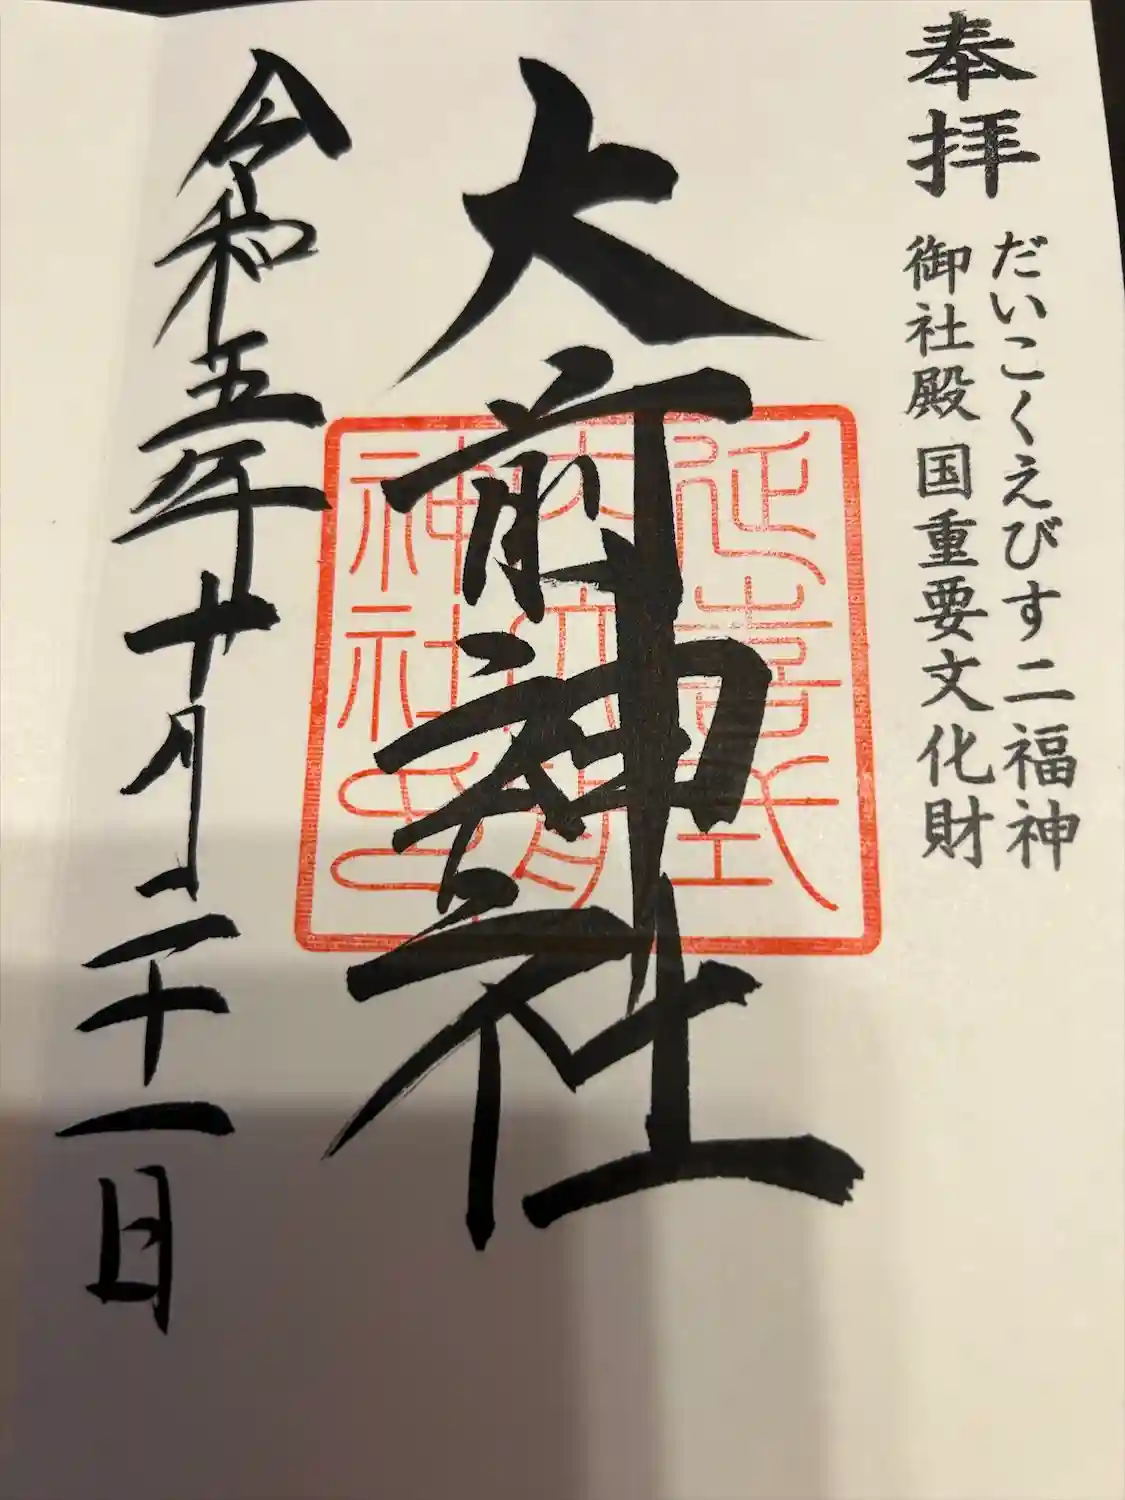 奉拝
だいこくえびす二福神
御社殿国重要文化財
大前神社
延喜式
内大前
神社印
令和五年十月二十一日